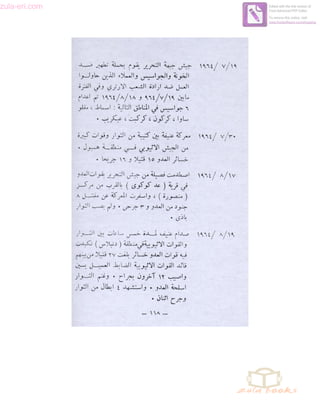 zula-eri.com
Edited with the trial version of
Foxit Advanced PDF Editor
To remove this notice, visit:
www.foxitsoftware.com/shopping
١٩٦٤/٧/١٩ جيش جبهة التحرير يقوم بحملة تطهير ضد
الخونة والجواسيس والعملاء الذين حاولوا
العمل ضد ارادة الشعب الارتري وفي الفترة
مابين ١٩٦٤/٧/١٩ و ١٩٦٤/٨/١٨ تم اعدام
٦ جواسيس في المناطق التالية : اسماط ، مقلو
ساوا ، كركون ، كركبت ، عيكريب .
٧/٣٠/ معركة عنيفة بين كتيبة من الثوار وقوات كبيرة
من الجيش الاثيوبي في منطقة هسول .
خسائر العدو ١٥ قتيلا و ١٦ جريحا .
١٩٦٤/٨/١٧ اصطدمت فصيلة من جيش التحرير بقوات العدو
في قرية ( عد كوكوي ) بالقرب من مركز
( منصورة ) ، واسفرت المعركة عن مقتل ٨
جنود من العدو و ٣ جرحى . ولم يصب الثوار
باذى .
١٩٦٤/٨/١٩ صدام عنيف لمدة خمس ساعات بين الثوار
والقوات الاثيوبية في منطقة ( دنبلاس ) تكبدت
فيه قوات العدو خسائر بلغت ٢٧ قتيلا من بينهم
قائد القوات الاثيوبية الضابط العميل
واصيب ١٢ آخرون بجراح . وغنم الثوار
اسلحة العدو . واستشهد ٤ ابطال من الثوار
وجرح اثنان .
— ١١٨ —
zula books